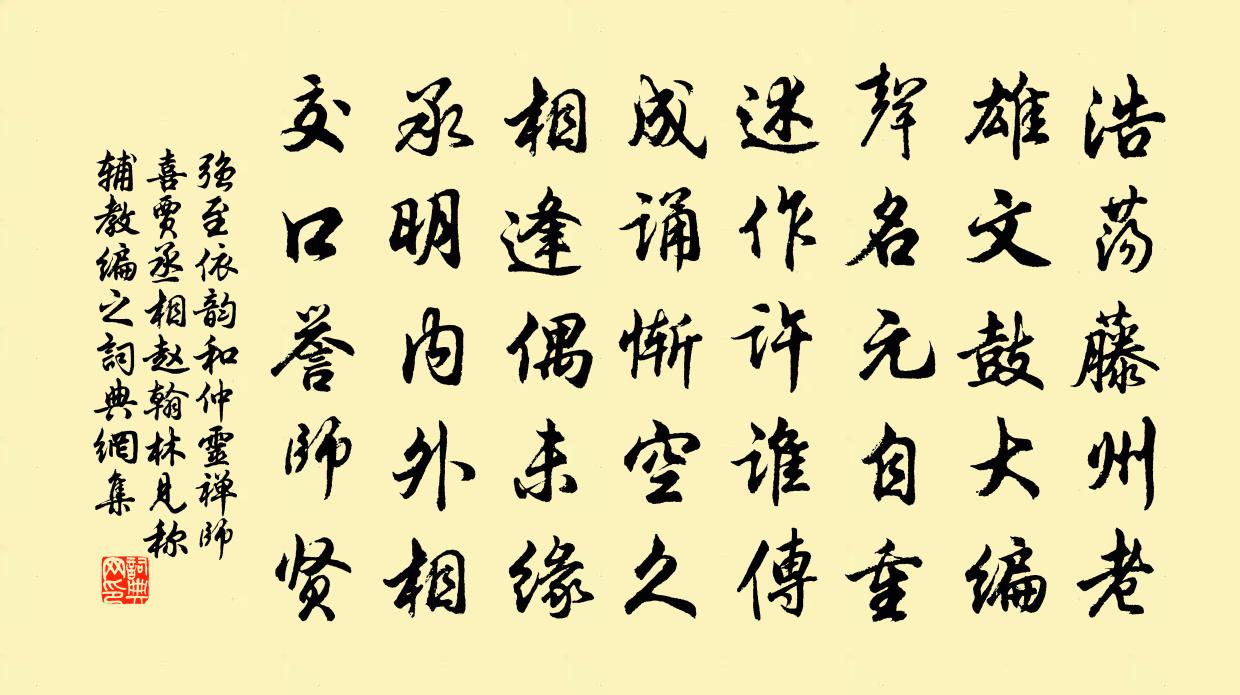 浩荡藤州老
雄文鼓大编
声名元自重
述作许谁傳
成诵惭空久
相逢偶未缘
承明内外相
交口誉师贤
强至依韵和仲靈禅师
喜贾丞相赵翰林见称
辅教编之詞典網集
詞典网印